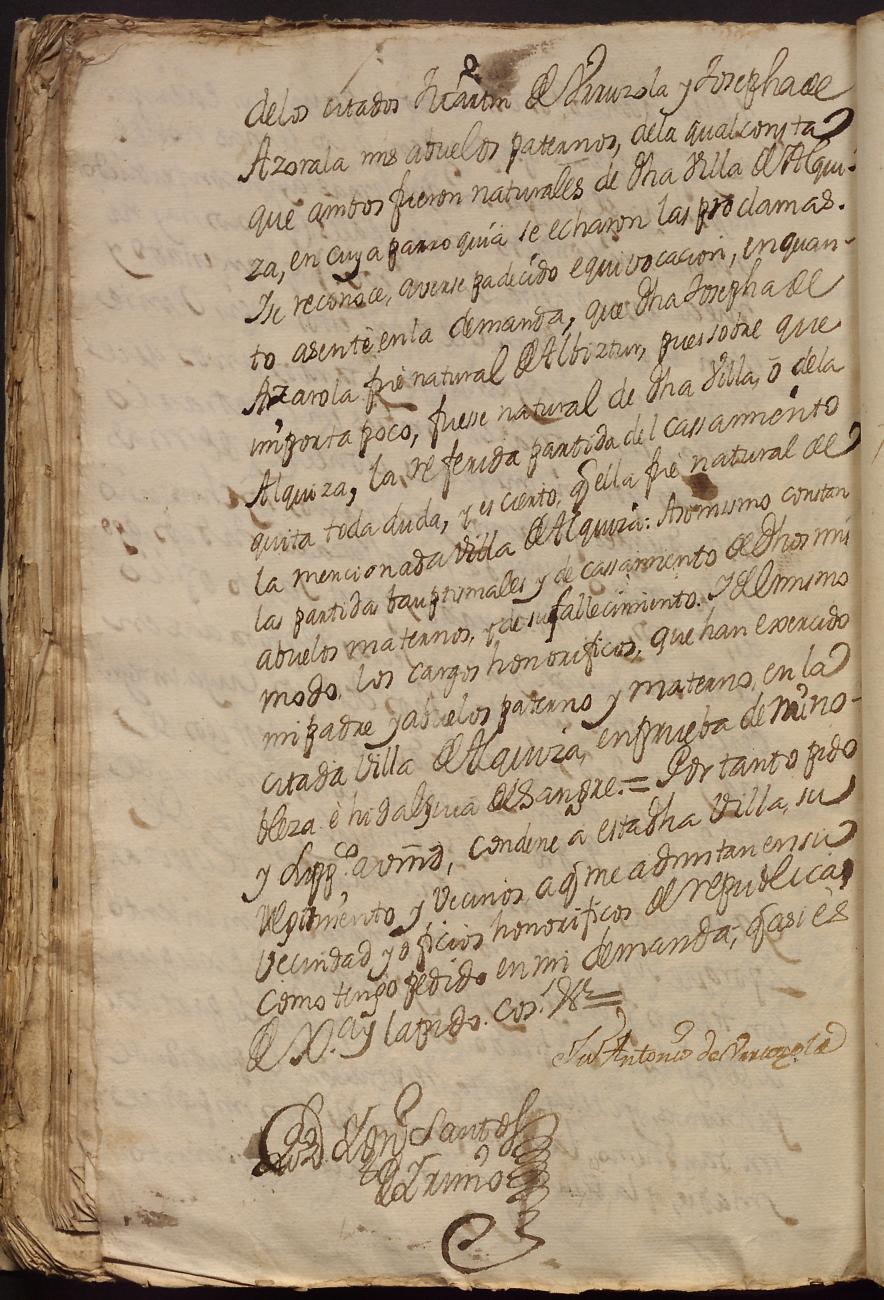 delos citados Martin de Urruzola y Josepha de
Azorala mis abuelos paternos, dela qual consta
que ambos fueron naturales de dha Villa de Alqui-
za, en cuya parroquia se echaron las proclamas.
Y se reconoce, averse padecido equivocacion, en quan-
to asentè en la demanda, que dha Josepha de
Azarola fuè natural de Albiztur, pues sobre que
importa poco, fuesse natural de dha Villa, ò dela
Alquiza, la referida partida del cassamiento
quita toda duda, y es cierto, q ella fuè natural de
la mencionada Villa de Alquiza: Asomismo constan
las partidas bauptismales y de cassamiento de dhos mis
abuelos maternos, y de su fallecimiento. Y del mismo
modo, los cargos honorificos, que han exercido
mi padre y abuelos paterno y materno, en la
citada Villa de Alquiza, en prueba de mi no-
bleza è hidalguia de Sangre. = Por tanto pido
y supp.co a vmd, condene a esta dha Villa, su
regimiento y Vecinos, a q me admitan en su
Vecindad y oficios honorificos de republica,
como tengo pedido en mi demanda, q asi ès
de J.a y la pido. cos.s &a =
Ju Antonio de Urruzola
Liz.do Dn Santos
de Trino